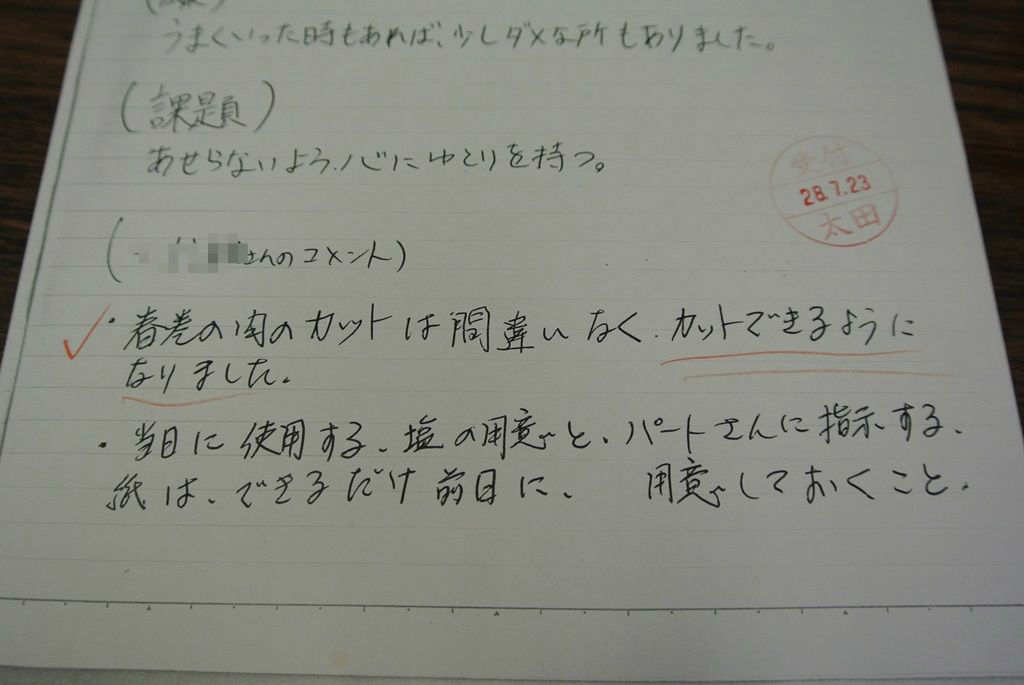 うまくいった時もあれば、少しダメな所もありました。
(課題)
あせらないよう、心にゆとりを持つ。
受付
28.7.23
太田
さんのコメント)
・春巻の肉のカットは間違いなく、カットできるように
なりました。
・当日に使用する、塩の用意と、パートさんに指示する、
紙は、できるだけ前日に、 用意しておくこと。